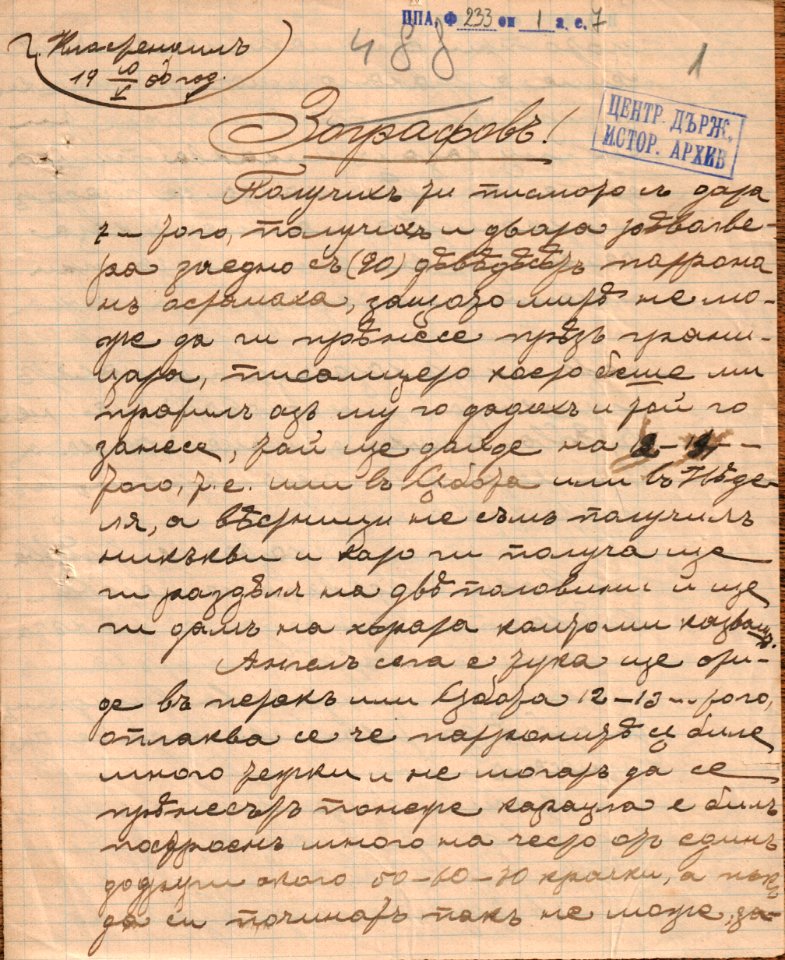 ЦПА, Ф 233 оп 1 а. е. 7
г. Кюстендилъ
488
1
19 10/V 00 год.
ЦЕНТР. ДЪРЖ.
ИСТОР. АРХИВ
Зографовъ!
Получихъ ти писмото съ дата
7-того, получихъ и двата
заедно съ (90) патрона
защото не мо-
же да ги прѣнесе прѣзъ грани-
цата, писалището което беше ми
пратилъ азъ му го дадохъ и той го
занесе, той ще дойде на
того, т. е. или въ Сѫбота или въ Нѣде-
ля, а вѣстници не съмъ получилъ
никъкви и като ги получа ще
ги раздѣля на двѣ половини и ще
ги дамъ на хората както ми казвашъ.
Ангелъ сега е тука ще оти-
де въ петакъ или Сѫбота 12-13 того,
оплаква се че патронитѣ сѫ биле
много тежки и не могатъ да се
прѣнесътъ понеже караула е билъ
построенъ много на често отъ единъ
до другъ около 50-60-70 крачки, а пъкъ
да си починатъ пакъ не може, за-